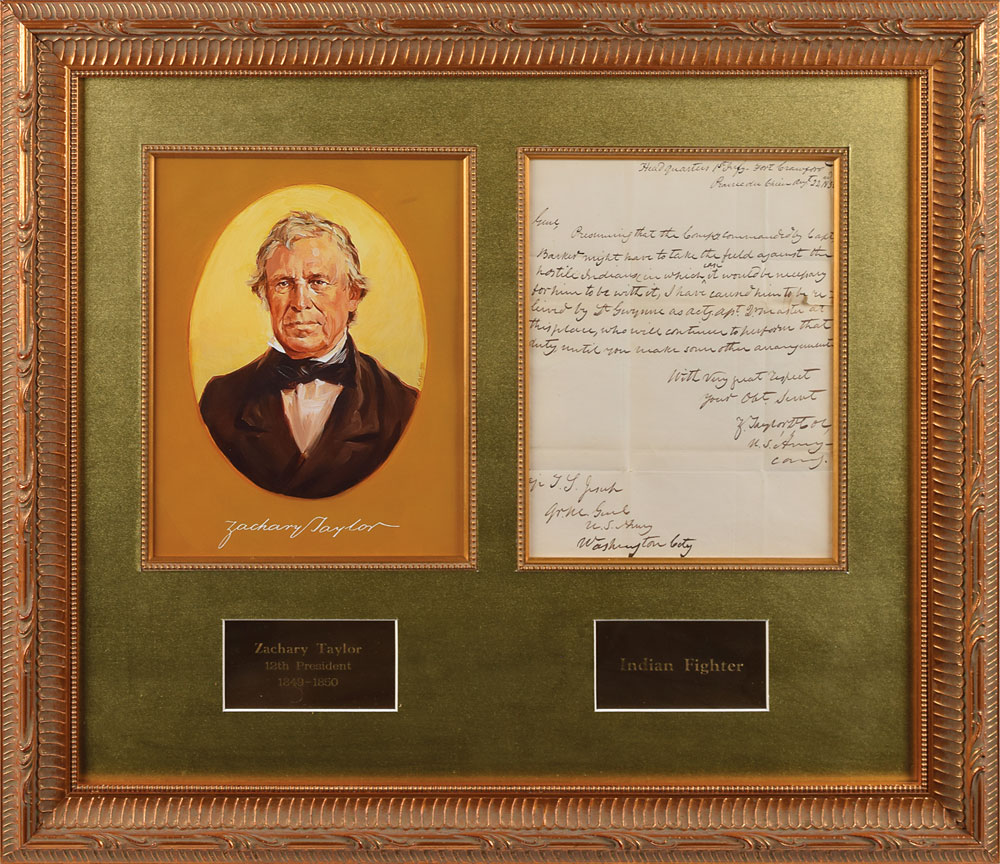 Zachary Taylor
Head quarters 1st Infy. Fort Crawford
Prairie du Chien Augt 22d
Genl
Presuming that the Comp. commanded by Capt
Barker might have to take the field against the
hostile Indians, in which case it would be necessary
for him to be with it, I have caused him to be re-
lieved by Lt Gwynne as actg asst. Qr master at
this place, who will continue to perform that
duty until you make some other arrangement
With very great respect
your Obt Servt
Z. Taylor Lt Col
U.S. Army
Comg.
T. S. Jesup
Qr M. Genl
U.S. Army
Washington City
Zachary Taylor
12th President
1849-1850
Indian Fighter